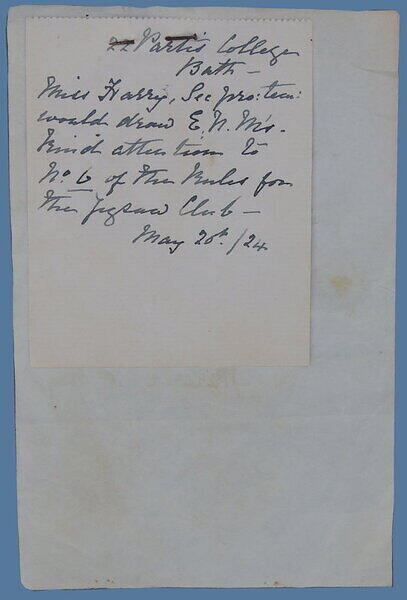 22 Partis College
Bath —
Miss Harry, Sec pro: tem:
would draw E. N. M's.
kind attention to
No. 6 of the Rules for
the Jigsaw Club —
May 20th. /24